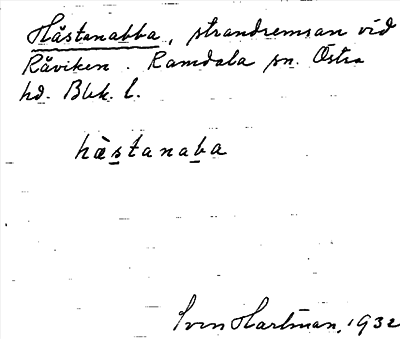 Håstanabba, strandremsan vid
Råviken. Ramdala sn. Östra
hd. Blek. l.
hàstanaba
Sven Hartman, 1932